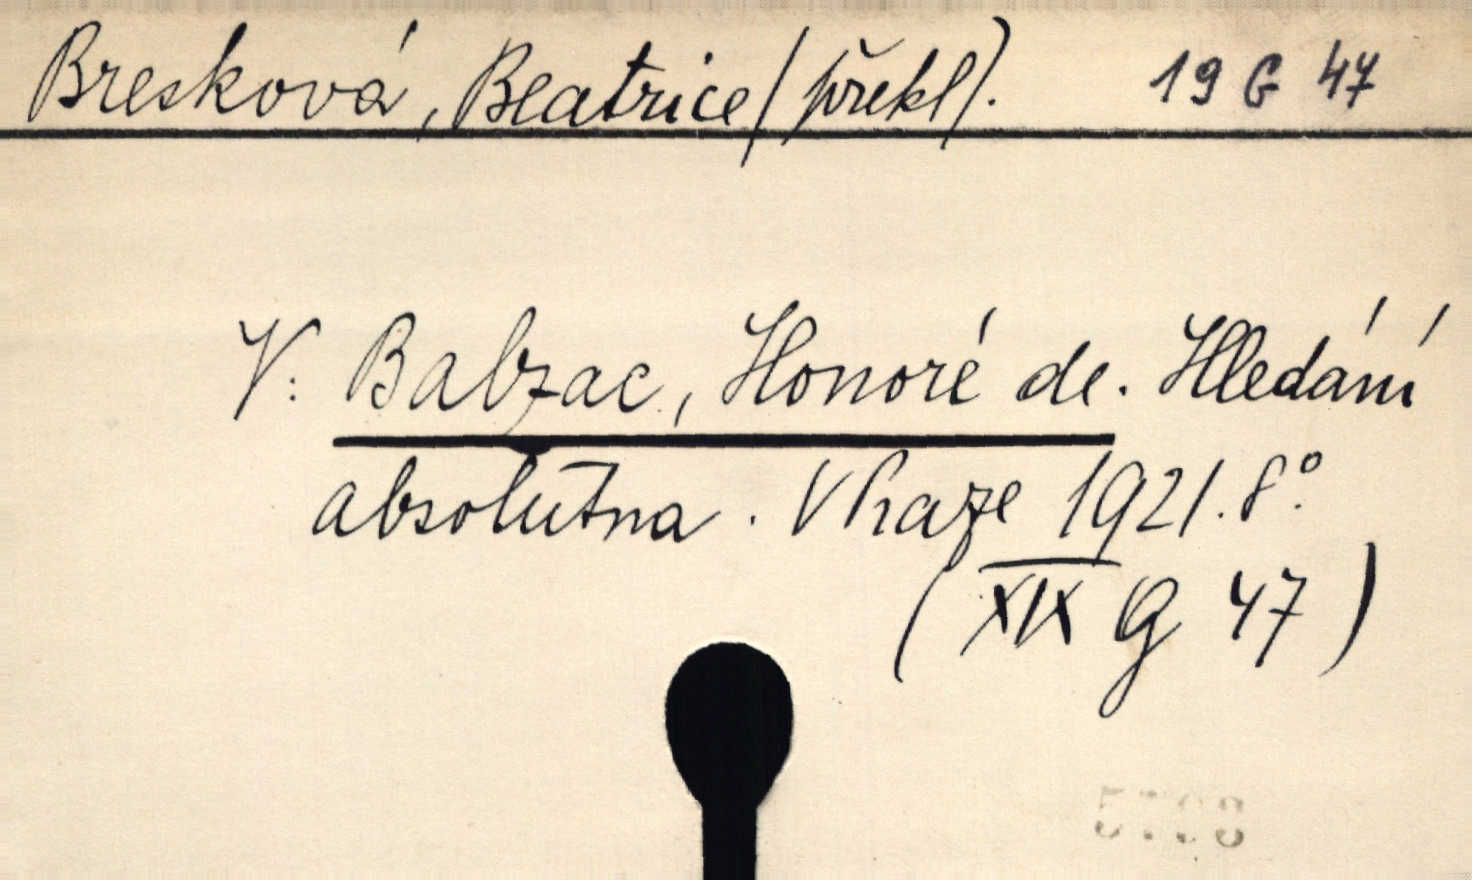 Bresková, Beatrice (překl). 19 G 47
V: Balzac, Honoré de. Hledání
absolutna. V Praze 1921. 8°.
(XIX G 47)